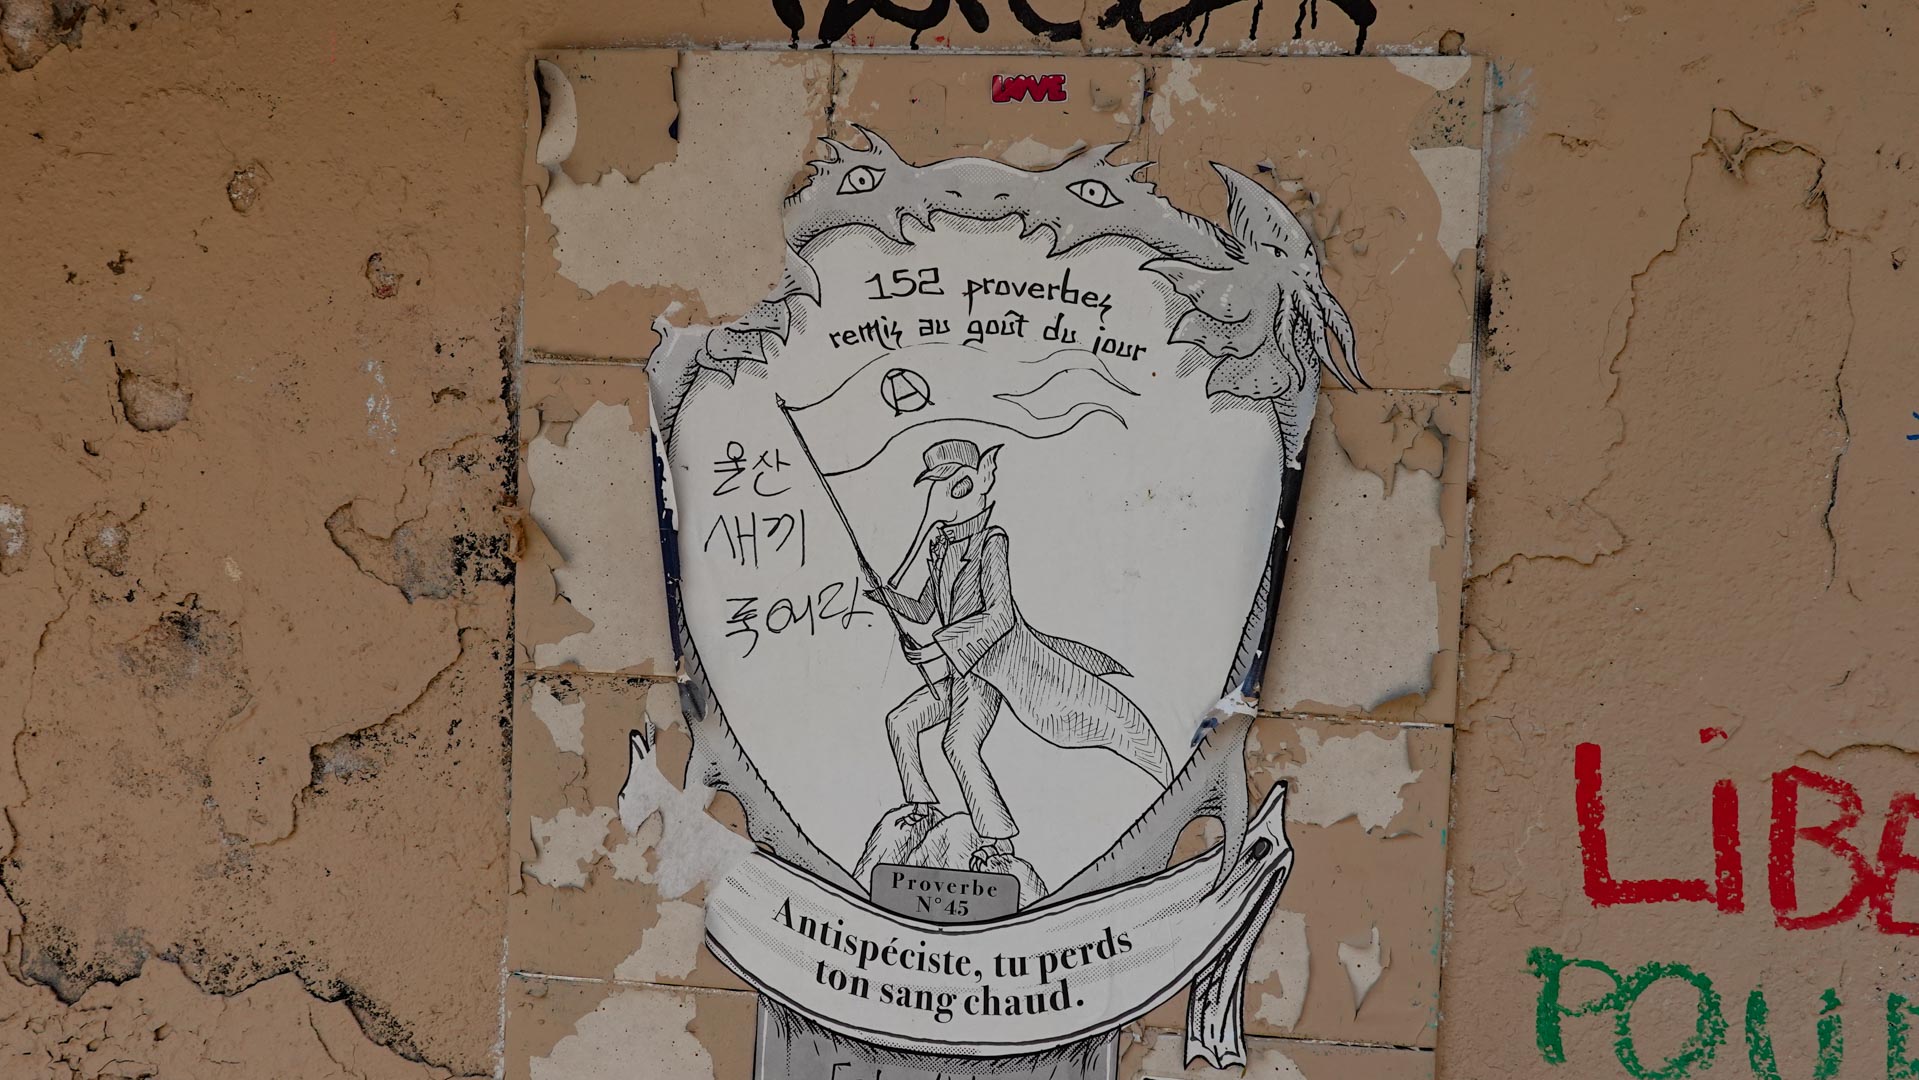 LOVE
152 proverbes
remis au goût du jour
울산
새끼
죽어라.
Proverbe
N°45
Antispéciste, tu perds
ton sang chaud.
LiBE
POUR